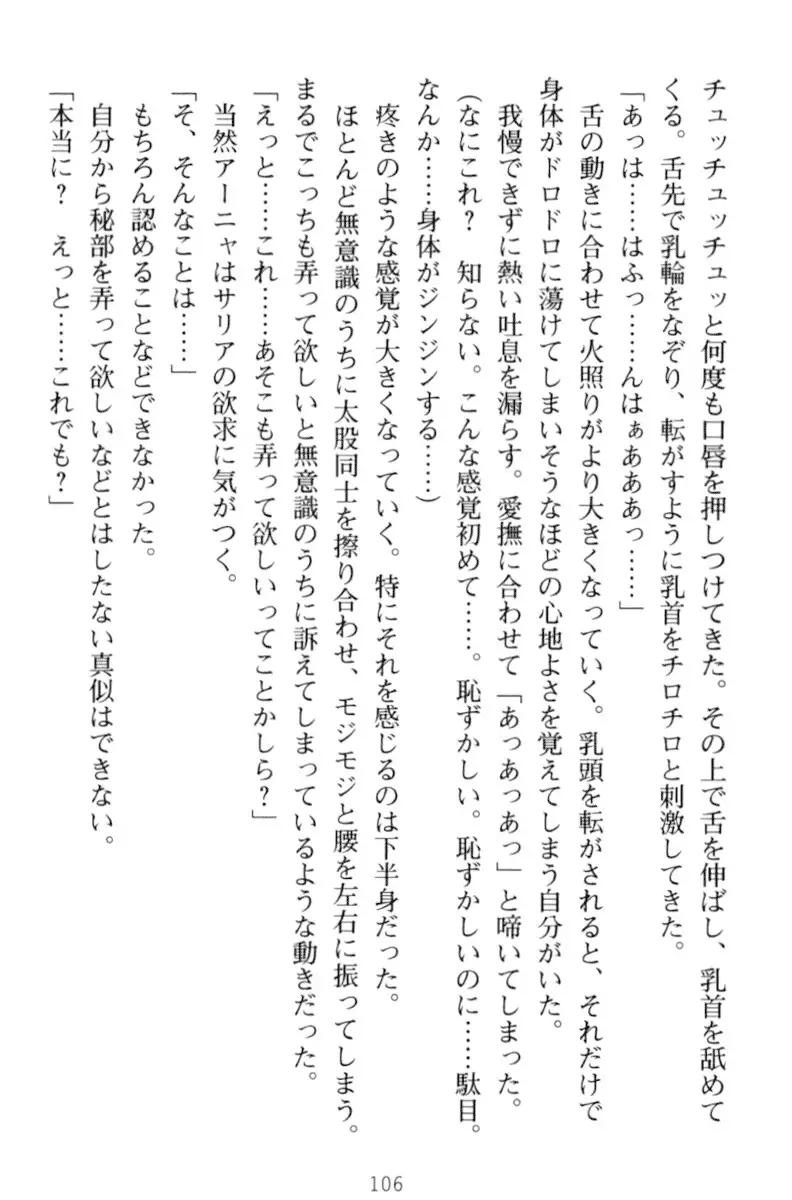 チュッチュッチュッと何度も口唇を押しつけてきた。その上で舌を伸ばし、乳首を舐めて
くる。舌先で乳輪をなぞり、転がすように乳首をチロチロと刺激してきた。
「あっは……はふっ……んはぁあああっ……」
舌の動きに合わせて火照りがより大きくなっていく。乳頭を転がされると、それだけで
身体がドロドロに蕩けてしまいそうなほどの心地よさを覚えてしまう自分がいた。
我慢できずに熱い吐息を漏らす。愛撫に合わせて「あっあっあっ」と啼いてしまった。
(なにこれ?　知らない。こんな感覚初めて……。恥ずかしい。恥ずかしいのに……駄目。
なんか……身体がジンジンする……)
疼きのような感覚が大きくなっていく。特にそれを感じるのは下半身だった。
ほとんど無意識のうちに太股同士を擦り合わせ、モジモジと腰を左右に振ってしまう。
まるでこっちも弄って欲しいと無意識のうちに訴えてしまっているような動きだった。
「えっと……これ……あそこも弄って欲しいってことかしら?」
当然アーニャはサリアの欲求に気がつく。
「そ、そんなことは……」
もちろん認めることなどできなかった。
自分から秘部を弄って欲しいなどとはしたない真似はできない。
「本当に?　えっと……これでも?」
106